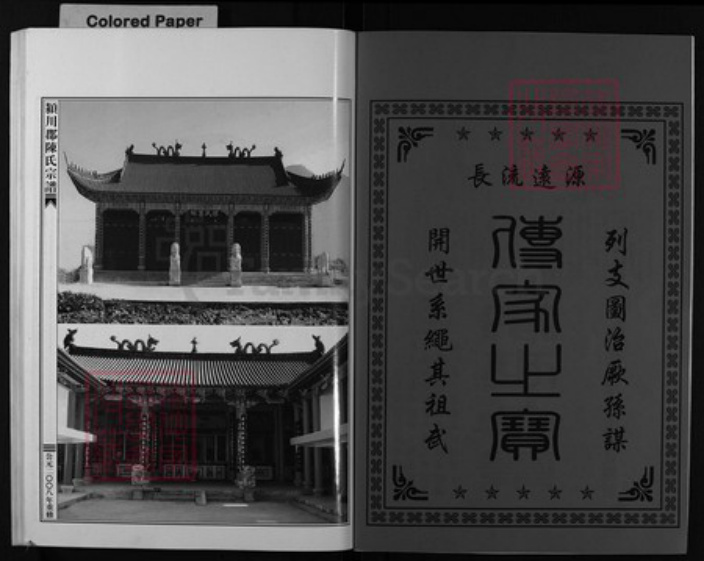 Colored Paper
潁川郡陳氏宗譜
公元二〇〇八年重修
源遠流長
列支圖治厥孫謀
傳家之寶
開世系繩其祖武